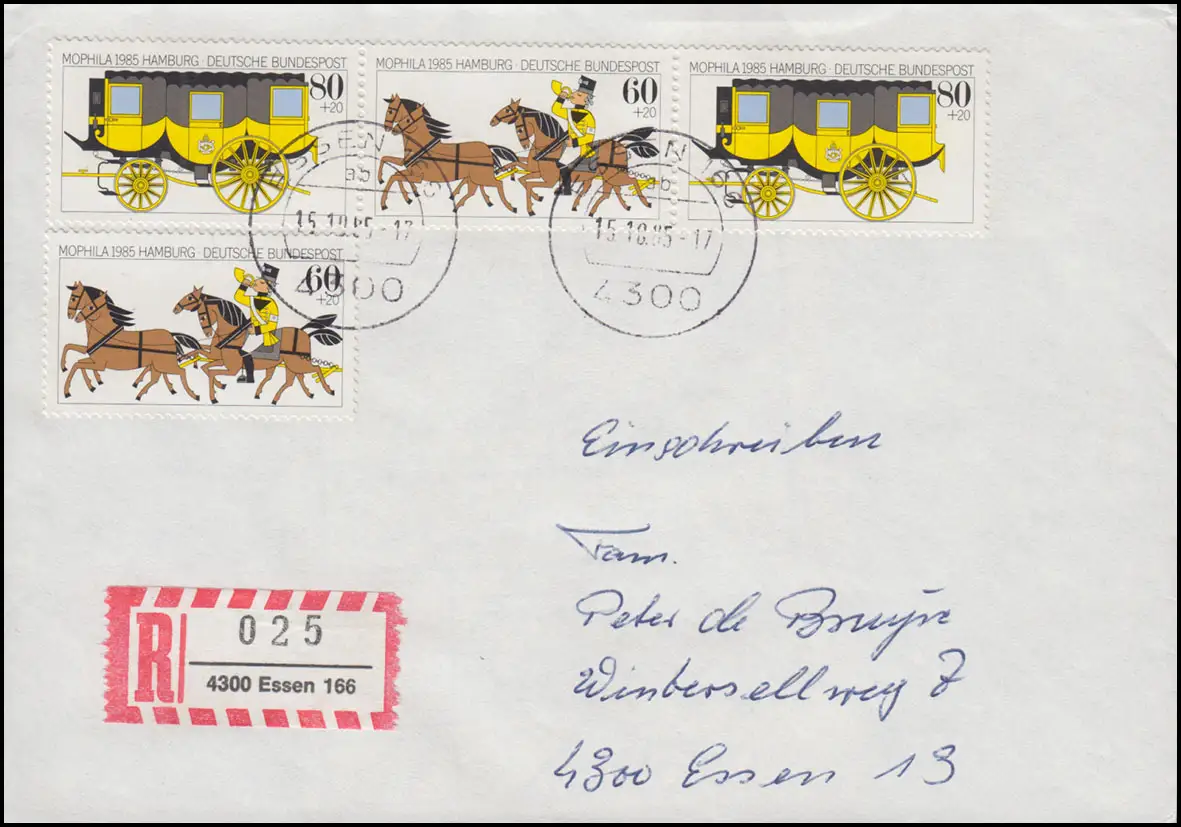 MOPHILA 1985 HAMBURG · DEUTSCHE BUNDESPOST
80
+20
MOPHILA 1985 HAMBURG · DEUTSCHE BUNDESPOST
60
+20
MOPHILA 1985 HAMBURG · DEUTSCHE BUNDESPOST
80
+20
ESSEN
15.10.85-17
4300
15.10.85-17
4300
MOPHILA 1985 HAMBURG · DEUTSCHE BUNDESPOST
60
+20
Einschreiben
Fam.
Peter de Bruyn
4300 Essen 13
R
025
4300 Essen 166